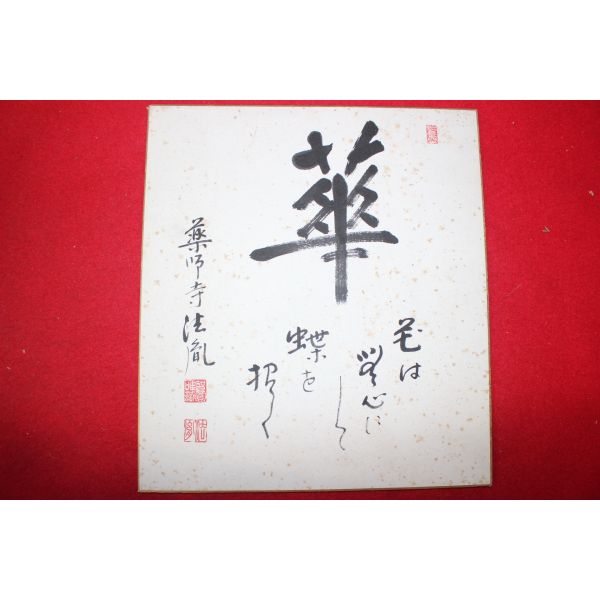 華
花は
無心に
して
蝶を
招く
薬師寺法胤